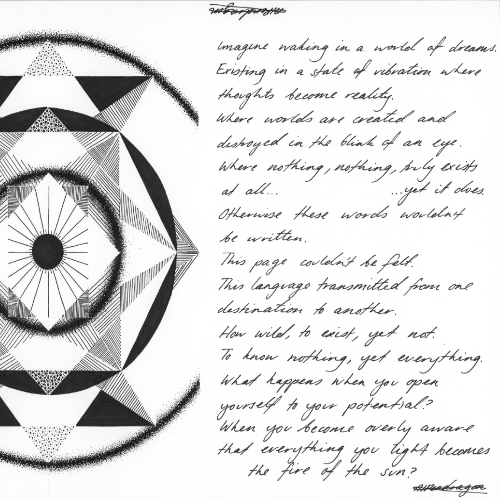 imagine waking in a world of dreams.
Existing in a state of vibration where
thoughts become reality.
Where worlds are created and
destroyed in the blink of an eye.
Where nothing, nothing, truly exists
at all... ...yet it does.
Otherwise these words wouldn't
be written.
This page couldn't be felt.
This language transmitted from one
destination to another.
How wild, to exist, yet not.
To know nothing, yet everything.
What happens when you open
yourself to your potential?
When you become overly aware
that everything you light becomes
the fire of the sun?